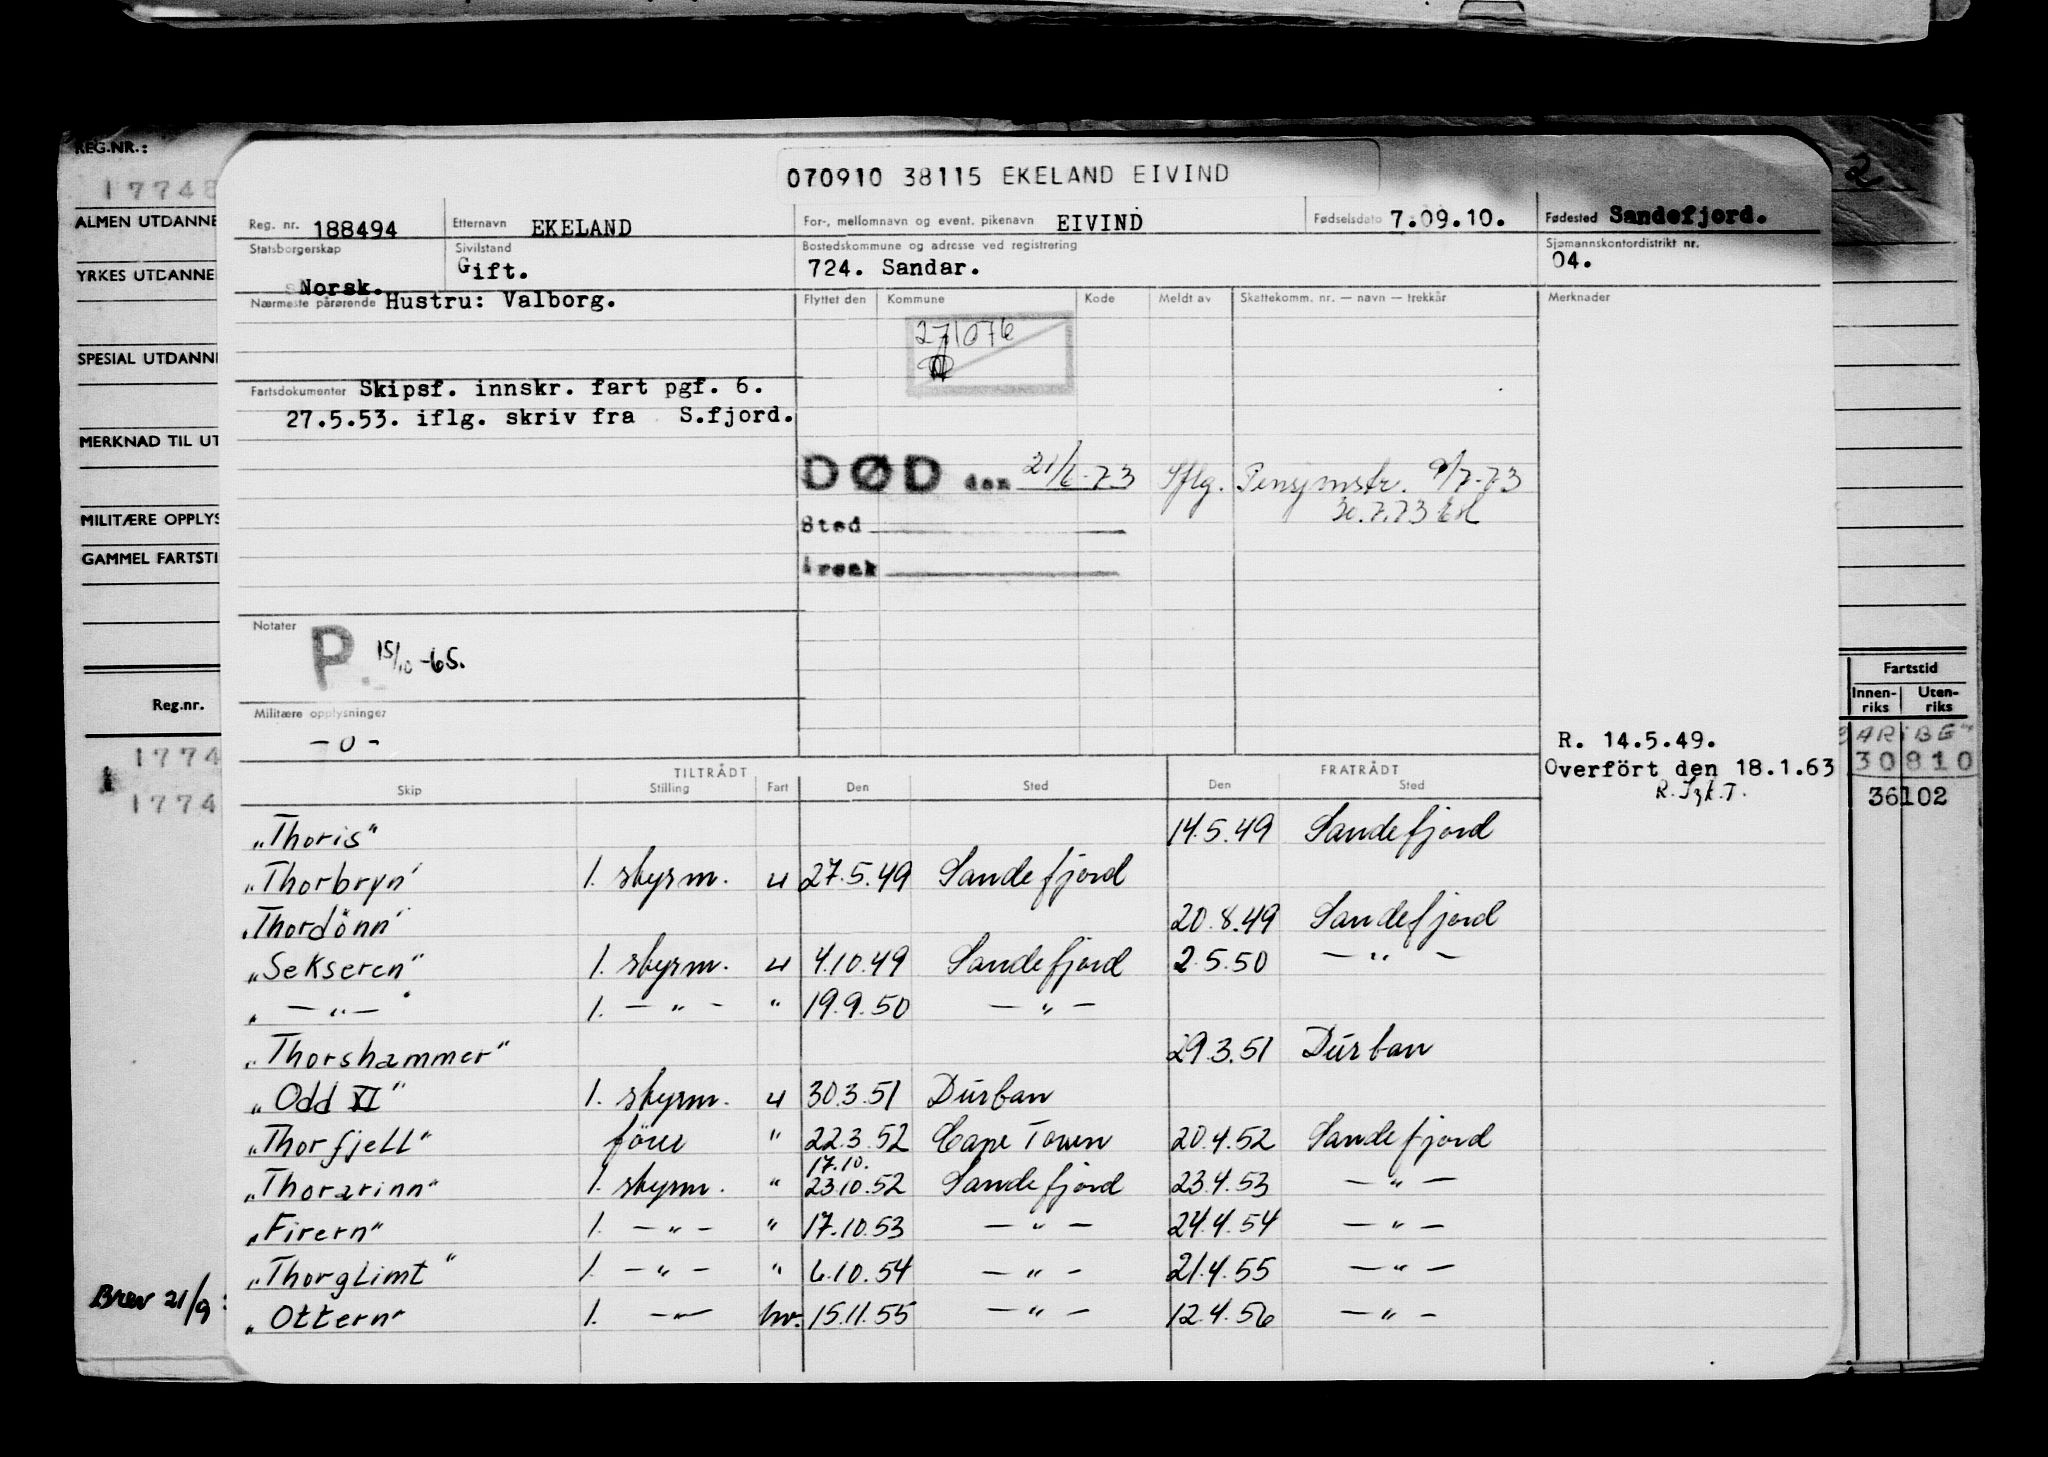 REG.NR.:
1774
ALMEN UTDANNE
YRKES UTDANNE
SPESIAL UTDANN
MERKNAD TIL UT
MILITÆRE OPPLYS
GAMMEL FARTSTI
Reg.nr.
1774
1774
Brev 21/9
070910 38115 EKELAND EIVIND
2
Reg. nr. 188494 Etternavn EKELAND For-, mellomnavn og event. pikenavn EIVIND Fødselsdato 7.09.10. Fødested Sandefjord.
Statsborgerskap Norsk. Sivilstand Gift. Bostedskommune og adresse ved registrering 724. Sandar. Sjømannskontordistrikt nr. 04.
Nærmeste pårørende Hustru: Valborg.
Flyttet den Kommune Kode Meldt av Skattekomm. nr. — navn — trekkår Merknader
271076
Fartsdokumenter Skipsf. innskr. fart pgf. 6.
27.5.53. iflg. skriv fra S.fjord.
DØD den 21/6-73 Iflg. Pensjonstr. 9/7-73
30.7.73
Sted
Årsak
Notater
P. 15/10-65.
Militære opplysninger
- 0 -
R. 14.5.49.
Overfört den 18.1.63
Fartstid
Innen-riks Uten-riks
30810
36102
TILTRÅDT FRATRÅDT
Skip Stilling Fart Den Sted Den Sted
„Thoris" 14.5.49 Sandefjord
„Thorbryn" 1. styrm. u 27.5.49 Sandefjord
„Thordönn" 20.8.49 Sandefjord
„Sekseren" 1. styrm. u 4.10.49 Sandefjord 2.5.50 — " —
„ — " — " 1. — " — " 19.9.50 — " —
„Thorshammer" 29.3.51 Durban
„Odd XI" 1. styrm. u 30.3.51 Durban
„Thorfjell" förer " 22.3.52 Cape Town 20.4.52 Sandefjord
17.10.
„Thorarinn" 1. styrm. " 23.10.52 Sandefjord 23.4.53 — " —
„Firern" 1. — " — " 17.10.53 — " — 24.4.54 — " —
„Thorglimt" 1. — " — " 6.10.54 — " — 21.4.55 — " —
„Ottern" 1. — " — hv. 15.11.55 — " — 12.4.56 — " —